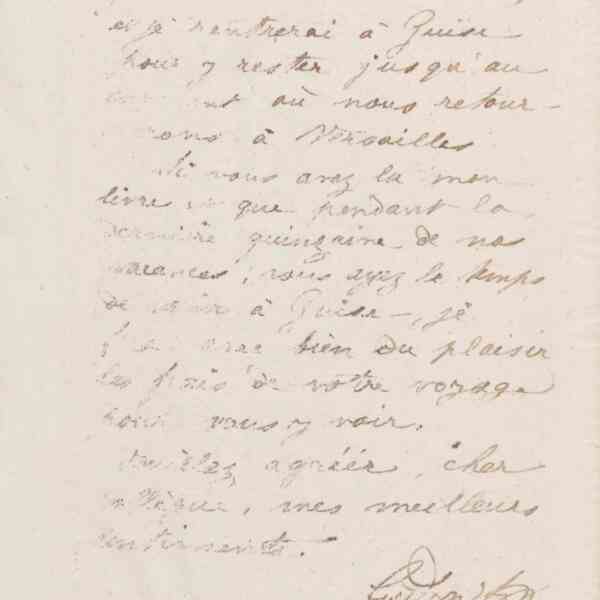 et je rentrerai à Guise
pour y rester jusqu'au
moment où nous retour-
nerons à Versailles
Si vous avez lu mon
livre et que pendant la
dernière quinzaine de nos
vacances, vous ayez le temps
de venir à Guise, je
ferai avec bien du plaisir
les frais de votre voyage
pour vous y voir.
Veuillez agréér, cher
collègue, mes meilleurs
sentiments.